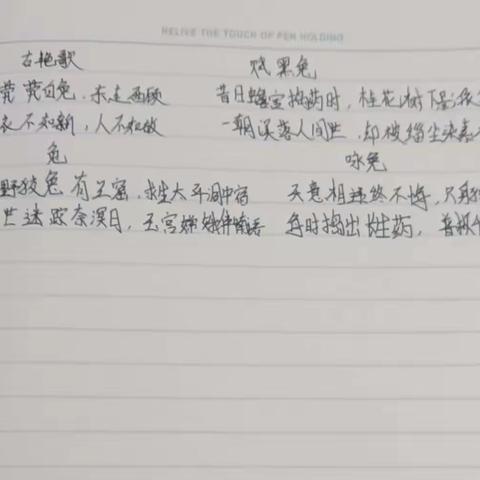 RELIVE THE TOUCH OF PEN HOLDING
古艳歌
茕茕白兔,东走西顾
衣不如新,人不如故
戏黑兔
昔日蟾宫捣药时,桂花树下影
一朝误落人间世,却被缁尘染
兔
野狡兔有三窟,求生大斗洞中宿
世迷踪奈溟日,玉宫嫦娥伴
咏兔
天意相违终不悔,只身
每时捣出长性药,普